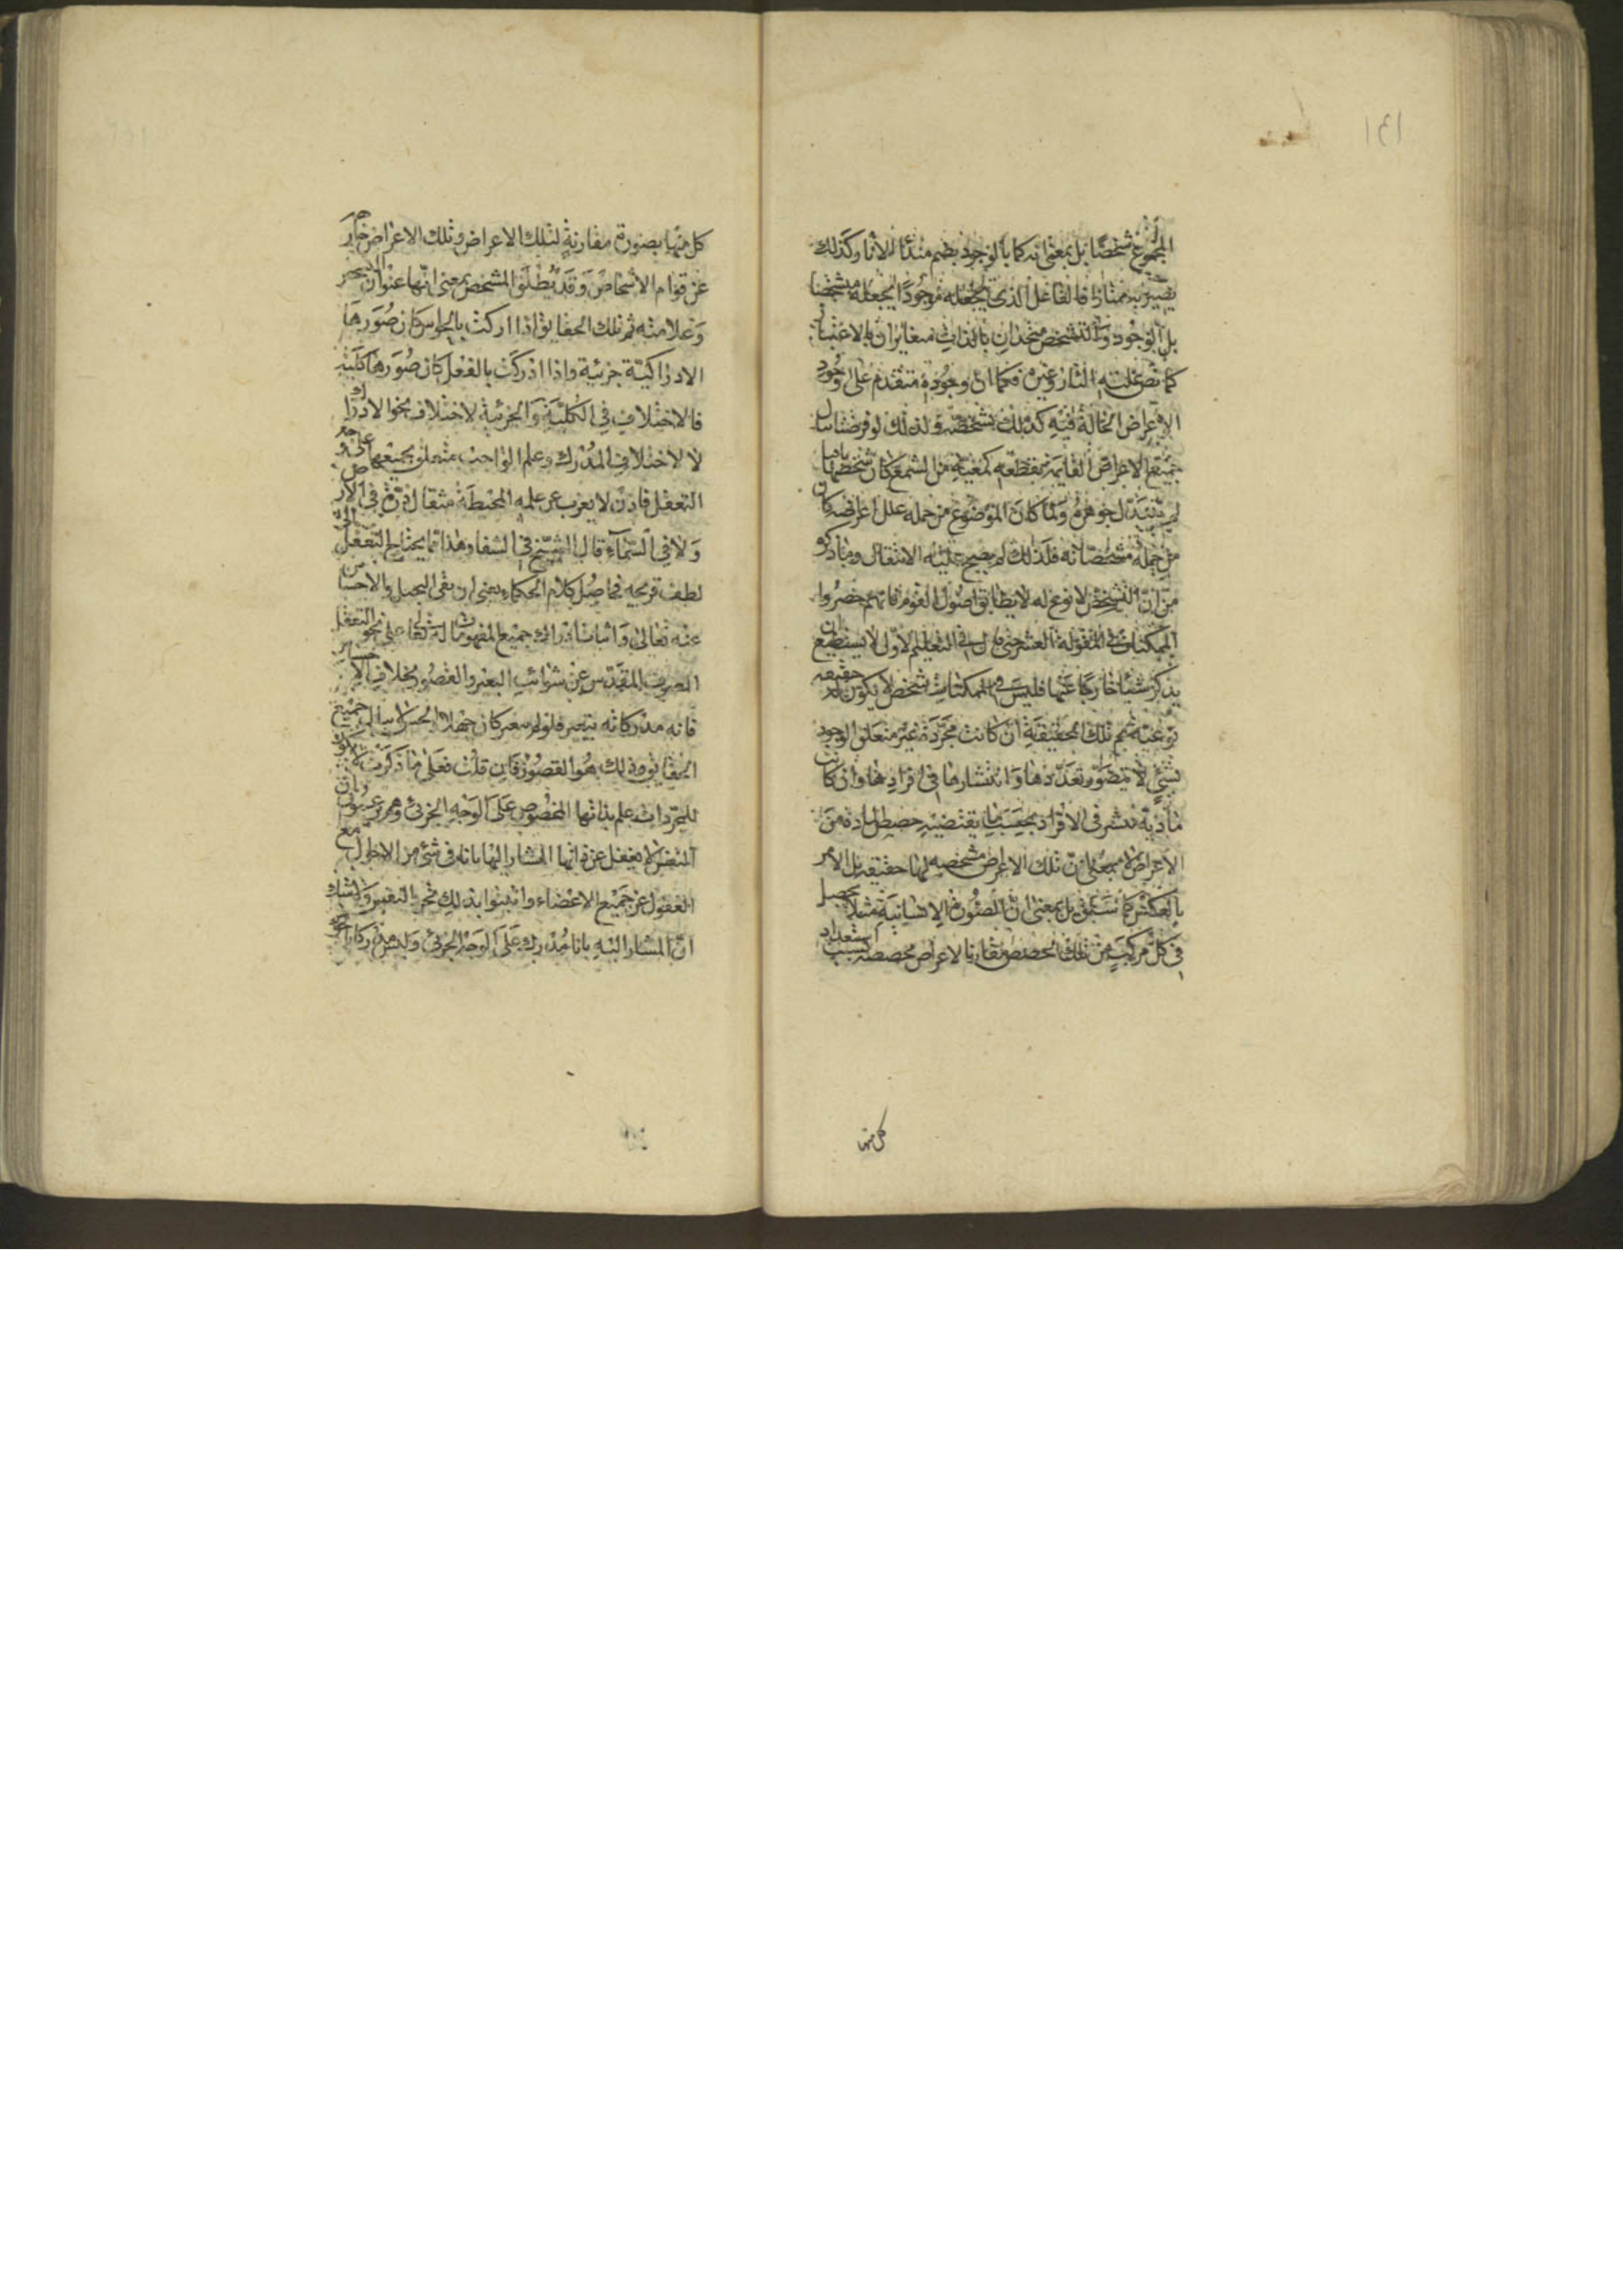 ١٣١
المجموع شخصا بل بمعنى انه كما بالوجود يصير مبدئا للاثار وكذلك
يصير به ممتازا فالفاعل الذي يجعله موجودا يجعله مشخصا
بل الوجود والتشخص متحدان بالذات متغايران بالاعتبار
كما نص عليه الفارابي وغيره فكما ان وجوده متقدم على وجود
الاعراض الحالة فيه كذلك تشخصه ولذلك لو فرضنا تبدل
جميع الاعراض القايمة بقطعة معينة من الشمع كان شخصها باقيا
لم يتبدل جوهره ولما كان الموضوع من جملة علل اعراضه كان
من جملة مشخصاته فلذلك لم يصح عليه الانتقال وما ذكروا
من ان التشخص لا نوع له لا يطابق اصول القوم فانهم حصروا
الممكنات في المقولة العشر حتى قال في التعليم الاول لا يستطيع
يذكر شيئا خارجا عنها فليس في الممكنات شخص لا يكون له حقيقة
نوعية ثم تلك الحقيقة ان كانت مجردة غير متعلق الوجود
بشيء لا يتصور تعددها وانتشارها في افرادها وان كانت
مادية تنتشر في الافراد بحسب ما يقتضيه حصص المادة من
الاعراض لا بمعنى ان تلك الاعراض مشخصة لها حقيقة بل الامر
بالعكس كما سبق بل بمعنى ان الصورة الانسانية مثلا يحصل
في كل مركب من تلك الحصص تقارنها الاعراض مخصصة بسبب استعداد
كل منها
كل منها بصورة مقارنة لتلك الاعراض وتلك الاعراض خارجة
عن قوام الاشخاص وقد يطلق المشخص بمعنى انها عنوان الشخص
وعلامته ثم تلك الحقايق اذا ادركت بالحواس كان صورها
الادراكية جزئية واذا ادركت بالعقل كان صورها كلية
فالاختلاف في الكلية والجزئية لاختلاف نحو الادراك
لا لاختلاف المدرك وعلم الواجب متعلق بجميعها على وجه
التعقل فاذن لا يعزب عن علمه المحيطة مثقال ذرة في الارض
ولا في السماء قال الشيخ في الشفا وهذا مما يحتاج التعقل الى
لطف قريحه فحاصل كلام الحكماء يعني ان نفي التخيل والاحساس
عنه تعالى واثبات ادراك جميع المفهومات له تعالى على نحو التعقل
الصرف المقدس عن شوائب التغير والقصور بخلاف الاحساس
فانه مدركاته يتغير فلو لم يتغير كان جهلا الحس لا ينال جميع
الحقايق وذلك هو القصور فان قلت فعلى ما ذكرت لا يكون
للمجردات علم بذاتها المخصوص على الوجه الجزئي وهم يدعون ان
النفس لا يغفل عن ذاتها المشار اليها بانا في شيء من الاحوال مع
الغفول عن جميع الاعضاء واثبتوا بذلك تجرد النفس ولا شك
ان المشار اليه بانا مدرك على الوجه الجزئي وليس مدركا بالحواس